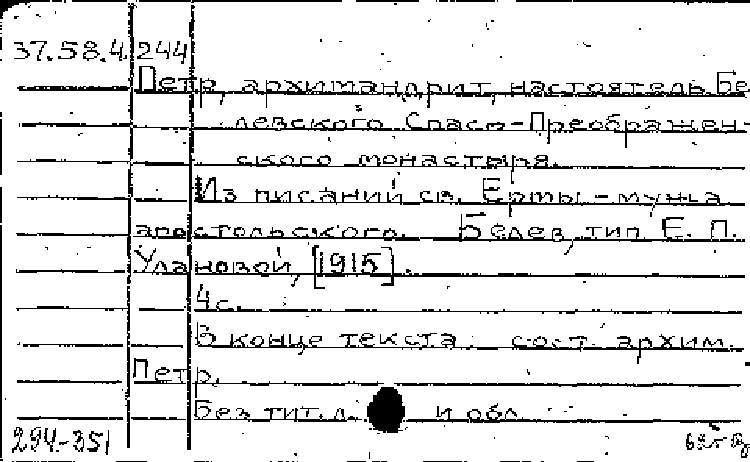 37.58.4 244
Петр, архимандрит, настоятель Бе
левского Спасо-Преображен-
ского монастыря.
Из писаний св. Ермы - мужа
апостольского. Белев, тип. Е. П.
Улановой, [1915].
4 с.
В конце текста: сост. архим.
Петр.
Без тит. л. и обл.
294-351